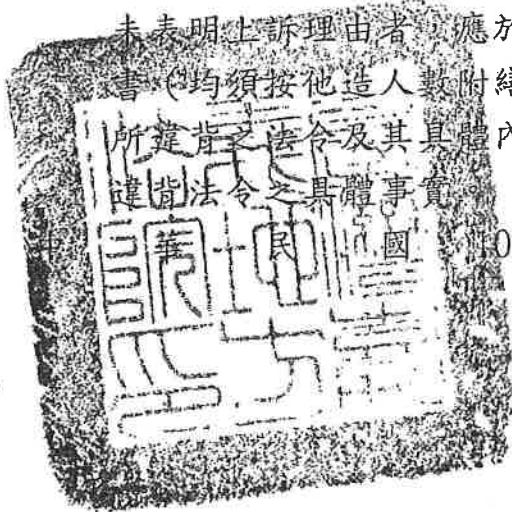 未表明上訴理由者,應於
書(均須按他造人數附繕
所違背之法令及其具體內
違背法令之具體事實。
中 華 民 國 10